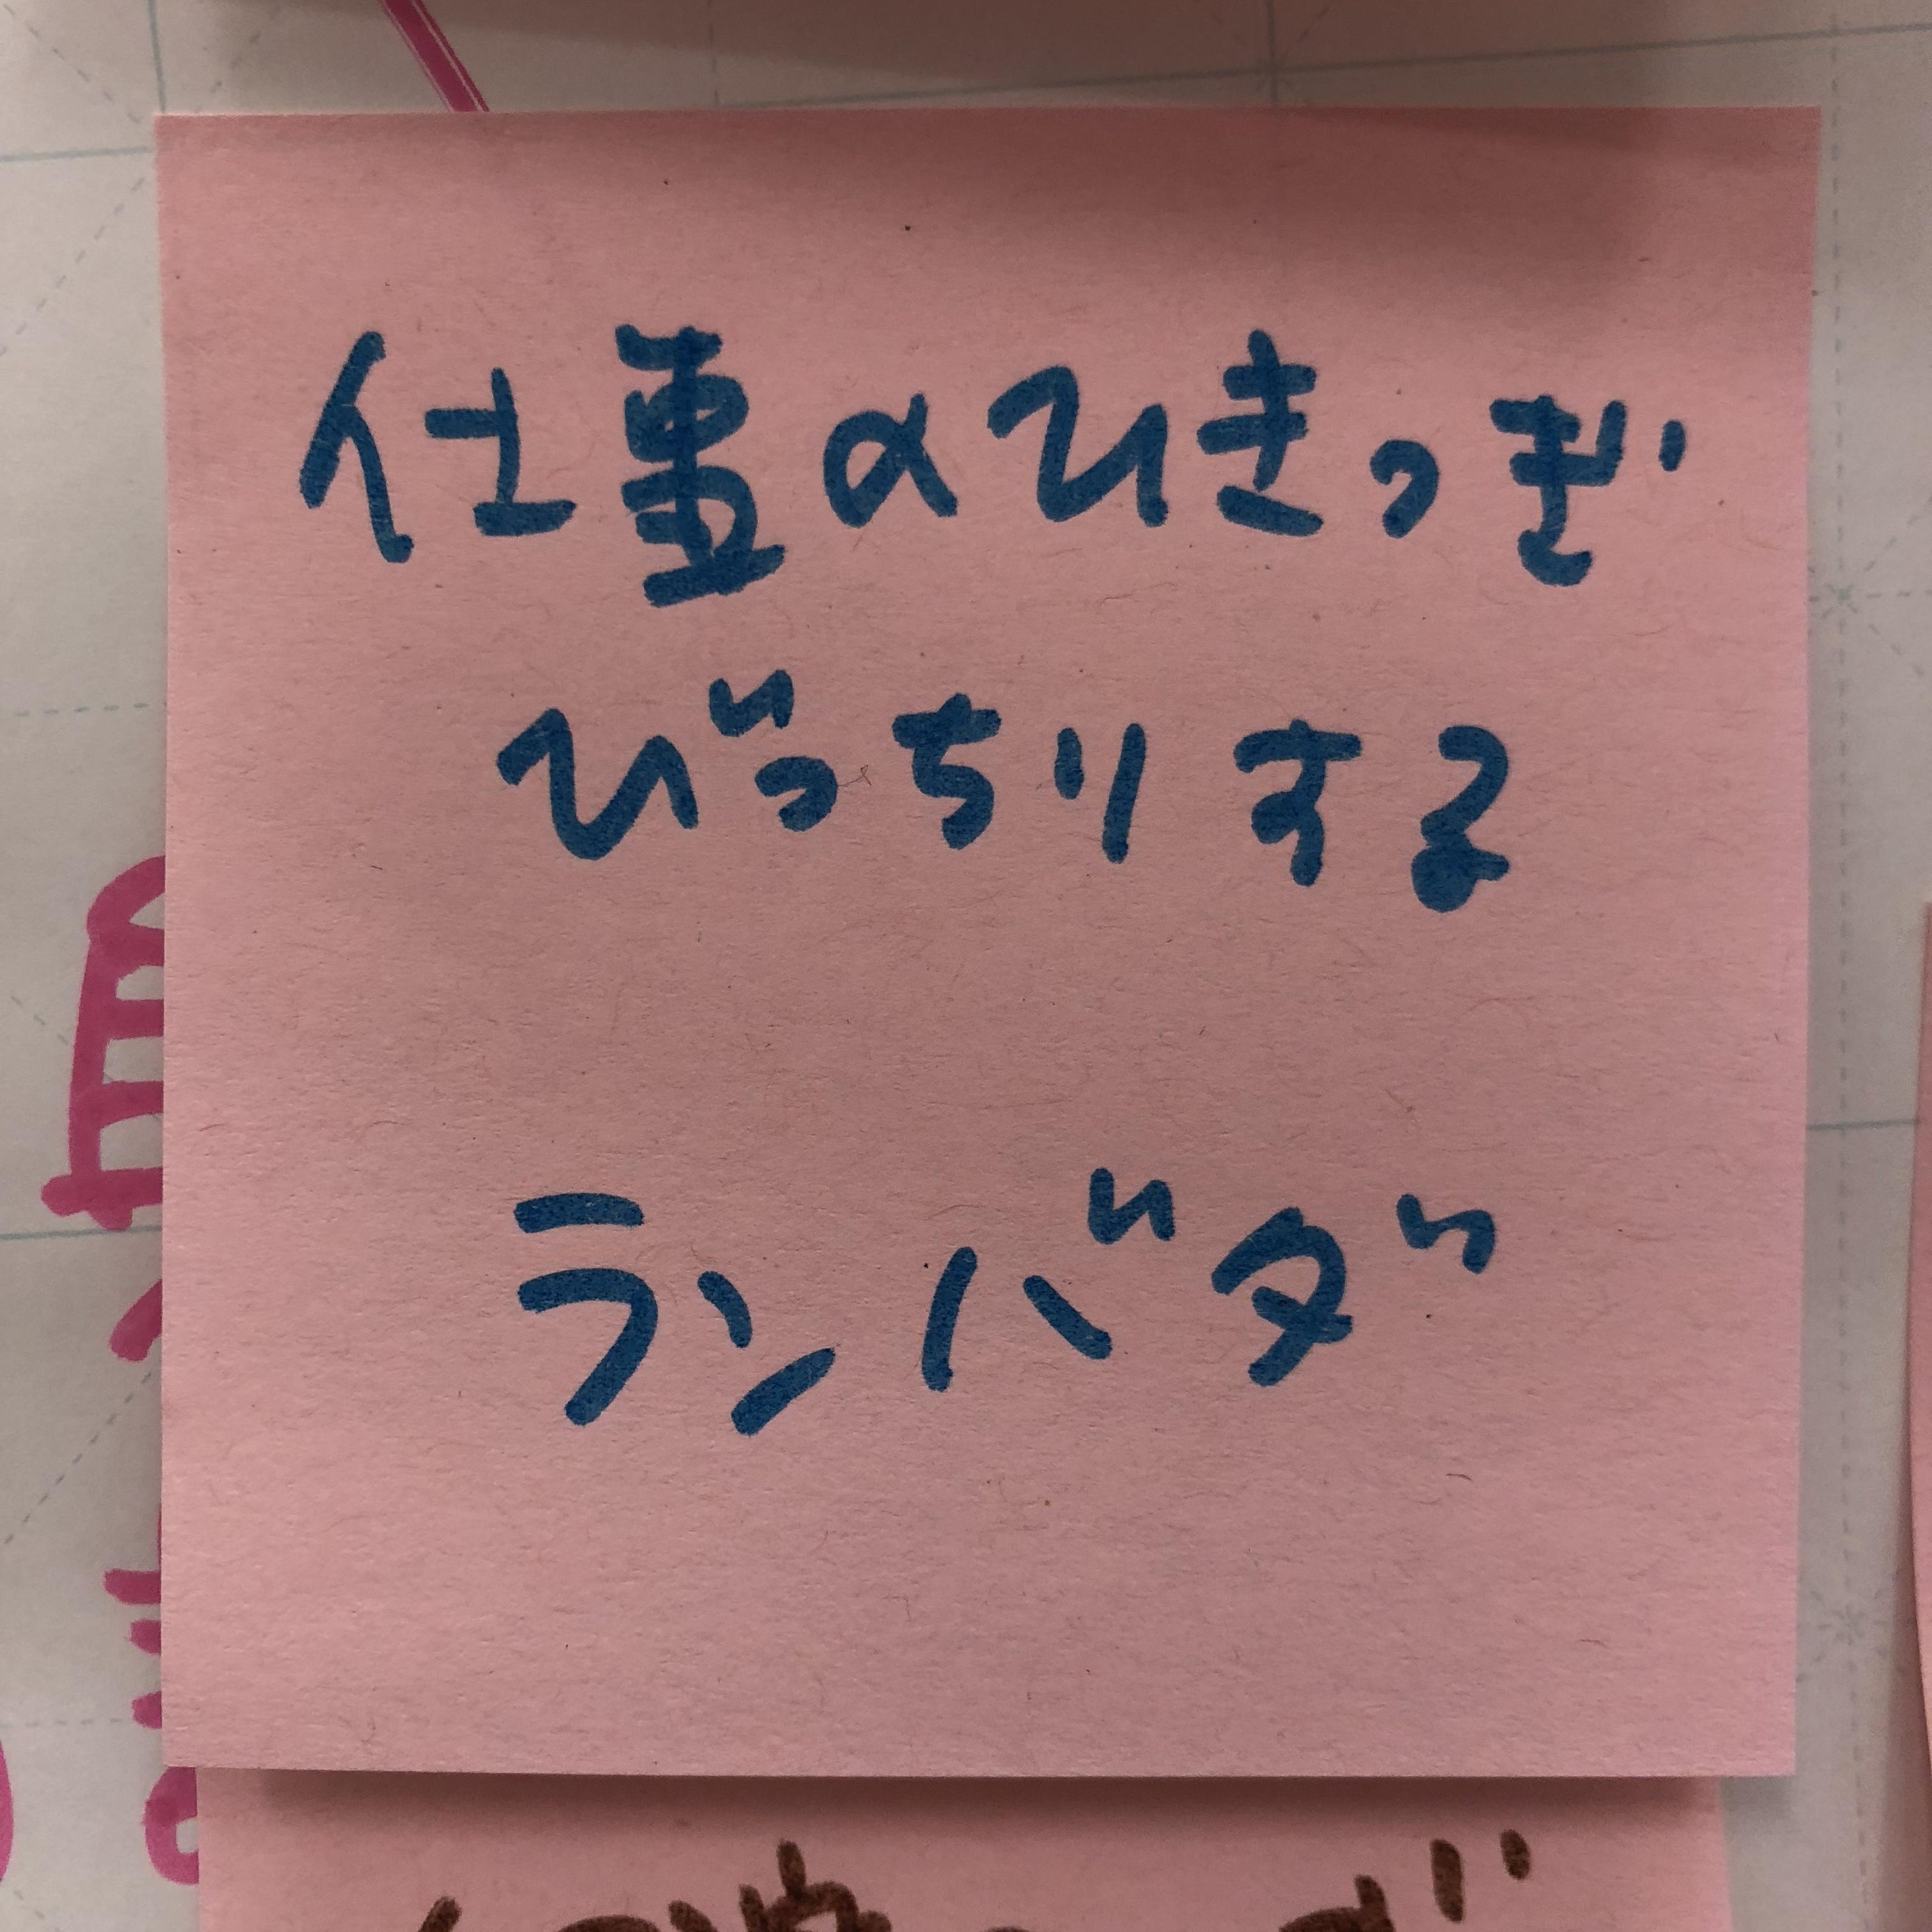 仕事のひきつぎ
びっちりする
ランバダ